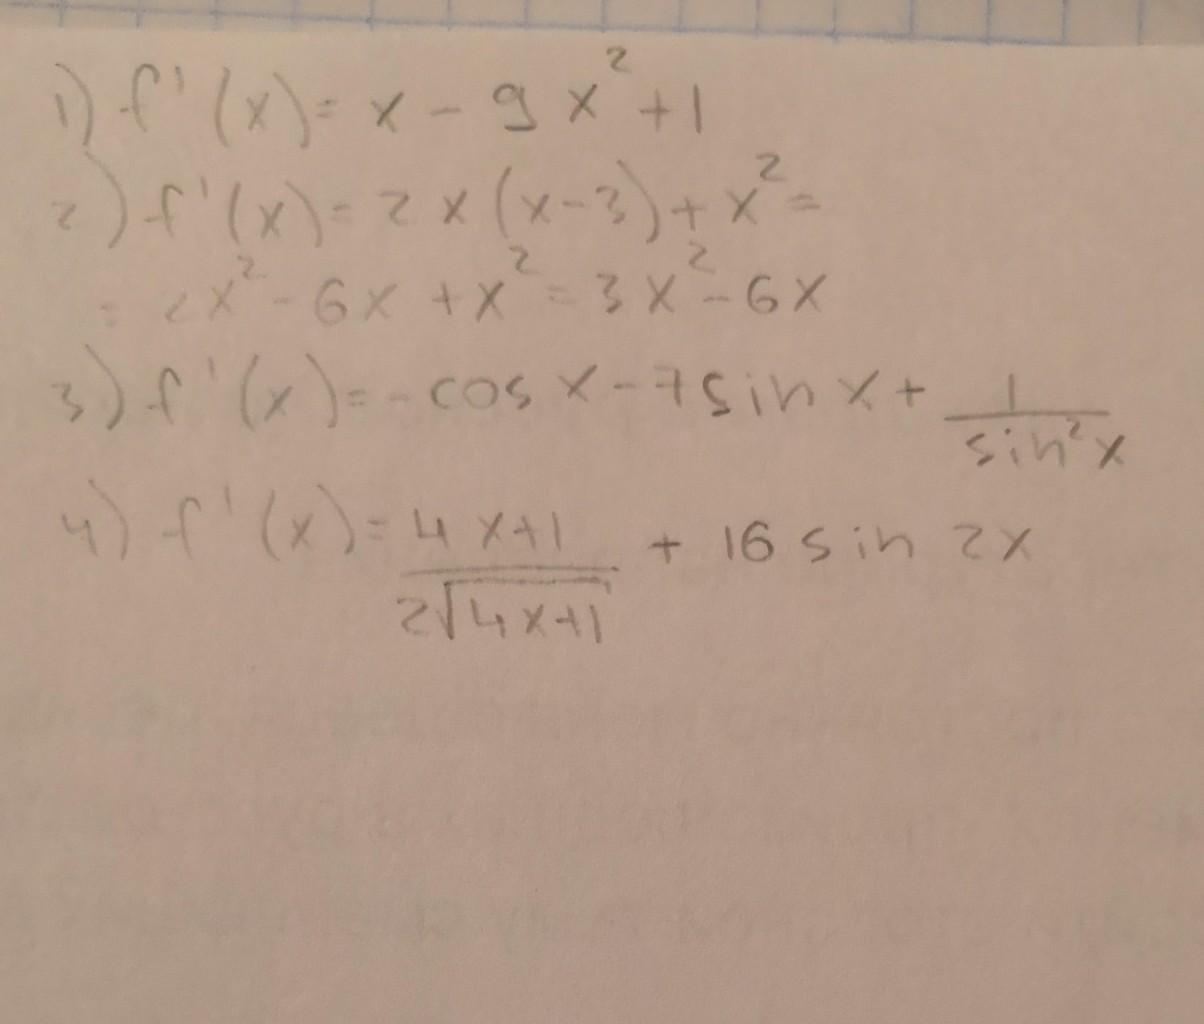 1) f'(x)= x - 9x² + 1
2) f'(x)= 2x(x-3)+x² =
= 2x² - 6x + x² = 3x² - 6x
3) f'(x)= -cos x - 7 sin x + 1/sin²x
4) f'(x)= 4x+1/2√4x+1 + 16 sin 2x